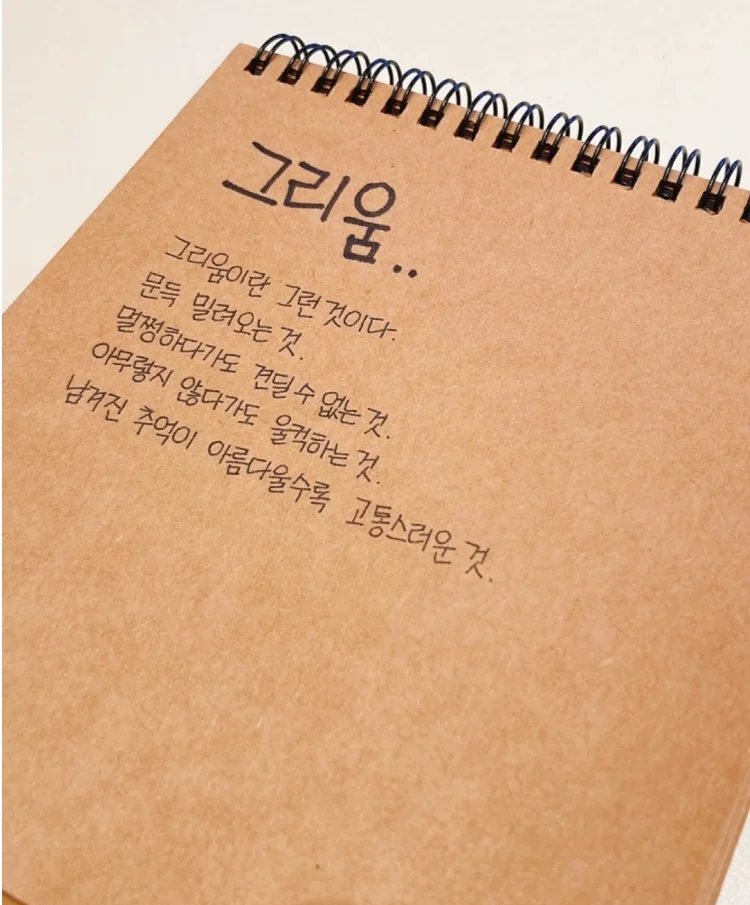 그리움..
그리움이란 그런 것이다.
문득 밀려오는 것.
멀쩡하다가도 견딜 수 없는 것.
아무렇지 않다가도 울컥하는 것.
남겨진 추억이 아름다울수록 고통스러운 것.